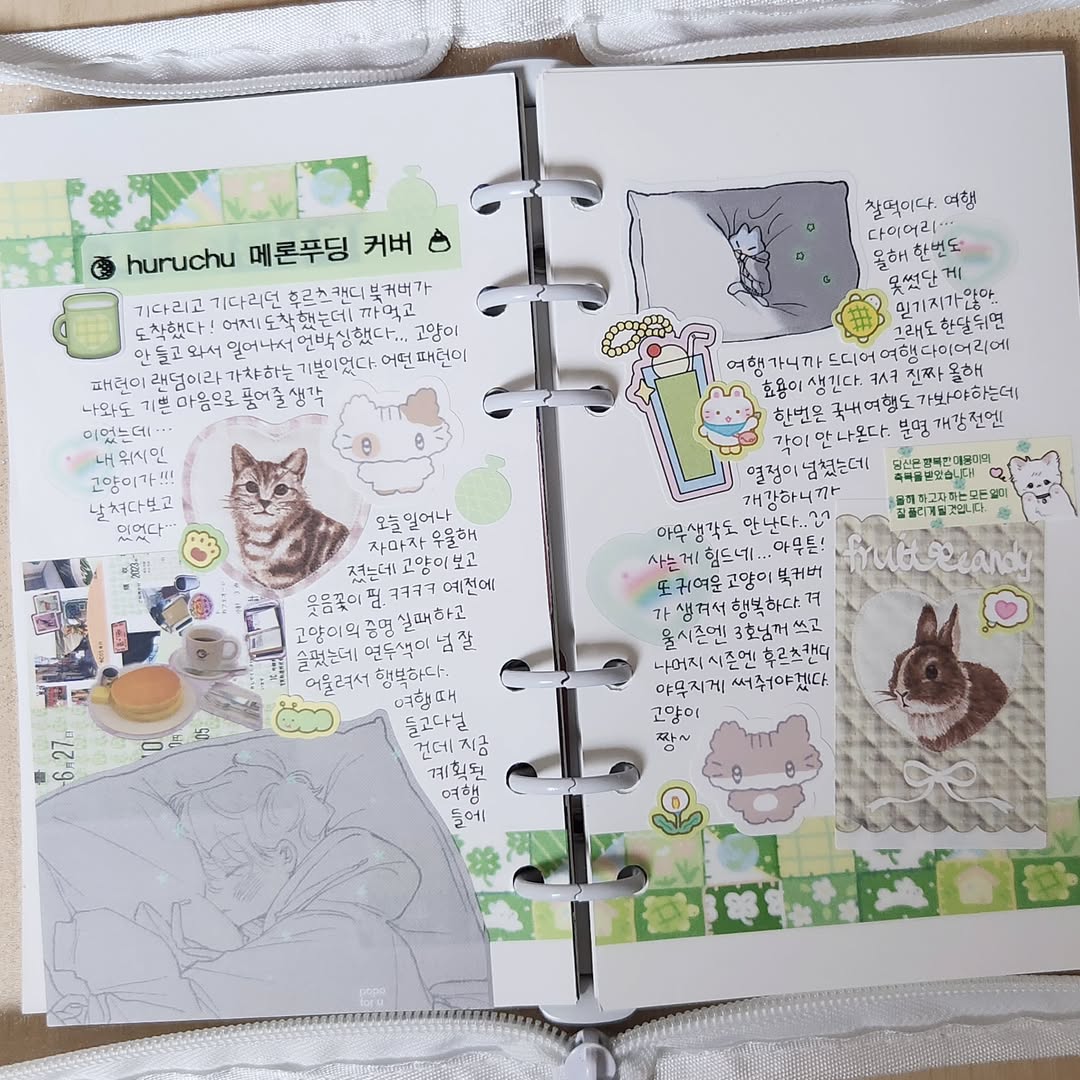 huruchu 메론푸딩 커버
기다리고 기다리던 후르츠캔디 북커버가
도착했다! 어제 도착했는데 까먹고
안 들고 와서 일어나서 언박싱했다... 고양이
패턴이 랜덤이라 가챠하는 기분이었다. 어떤 패턴이
나와도 기쁜 마음으로 품어줄 생각
이었는데...
내 위시인
고양이가!!!
날 쳐다보고
있었다...
오늘 일어나
자마자 우울해
졌는데 고양이 보고
웃음꽃이 핌. ㅋㅋㅋㅋ 예전에
고양이의 증명 실패하고
슬펐는데 연두색이 넘 잘
어울려서 행복하다.
여행 때
들고다닐
건데 지금
계획된
여행
들에
6月27日
popo
for u
찰떡이다. 여행
다이어리...
올해 한번도
못썼단 게
믿기지가 않아..
그래도 한달 뒤면
여행가니까 드디어 여행 다이어리에
효용이 생긴다. ㅋㅅㅋ 진짜 올해
한번은 국내여행도 가봐야하는데
각이 안 나온다. 분명 개강전엔
열정이 넘쳤는데
개강하니까
아무생각도 안 난다..
사는게 힘드네... 아무튼!
또 귀여운 고양이 북커버
가 생겨서 행복하다. 겨
울시즌엔 3호님꺼 쓰고
나머지 시즌엔 후르츠캔디
야무지게 써줘야겠다.
고양이
짱~
당신은 행복한 매웅미의
축복을 받았습니다!
올해 하고자 하는 모든 일미
잘 풀리게 될 것입니다.
fruit candy